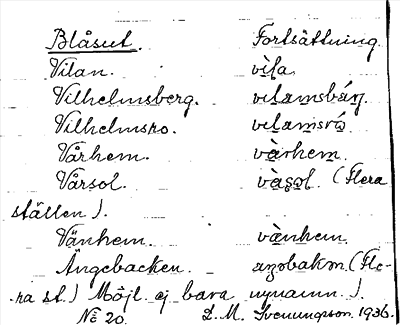 Blåsut. Fortsättning.
Vilan. vìla
Vilhelmsberg. vilamsbárj
Vilhelmsro. vilamsró
Vårhem. vàrhem
Vårsol. vàsol. (Flera
ställen).
Vänhem. vànhem.
Ängebacken. (Fle-
ra st.) Möjl. ej bara nynamn.).
No 20. L. M. Svenungson. 1936.